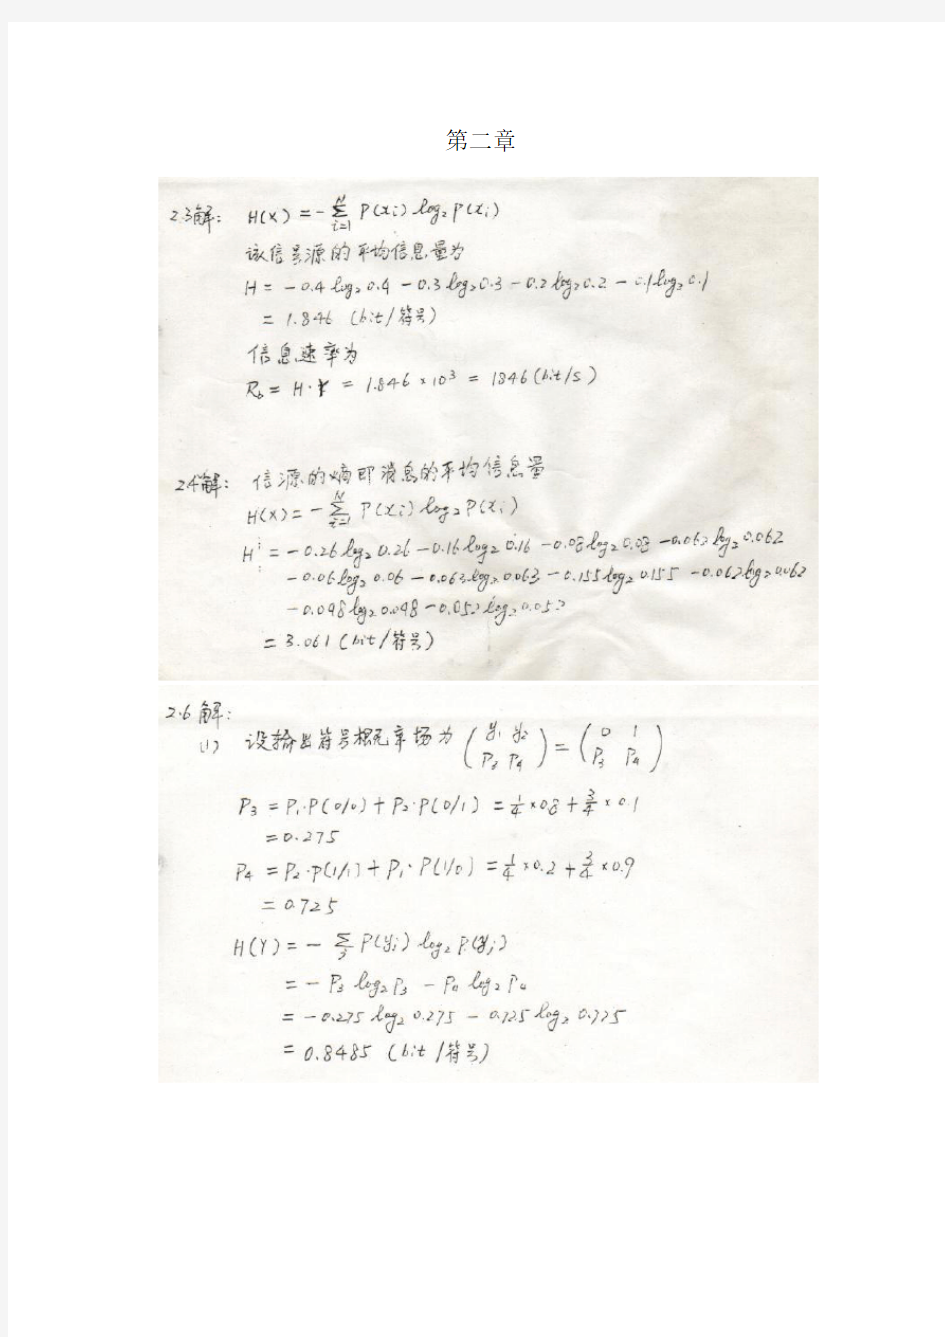 第二章
2.3解: H(X) = -∑_{i=1}^{N} P(xi) log₂P(xi)
该信号源的平均信息量为
H = -0.4log₂0.4 - 0.3log₂0.3 - 0.2log₂0.2 - 0.1log₂0.1
= 1.846 (bit/符号)
信息速率为
R_b = H·r = 1.846×10³ = 1846(bit/s)
2.4解: 信源的熵即消息的平均信息量
H(X) = -∑_{i=1}^{N} P(xi) log₂P(xi)
H = -0.26log₂0.26 - 0.16log₂0.16 - 0.08log₂0.08 - 0.062log₂0.062
-0.06log₂0.06 - 0.063log₂0.063 - 0.155log₂0.155 - 0.062log₂0.062
-0.098log₂0.098 - 0.052log₂0.052
= 3.061 (bit/符号)
2.6解:
(1) 设输出符号概率场为 (y₁ y₂ / P₃ P₄) = (0 1 / P₃ P₄)
P₃ = P₁·P(0/0) + P₂·P(0/1) = 1/4×0.8 + 3/4×0.1
= 0.275
P₄ = P₂·P(1/1) + P₁·P(1/0) = 1/4×0.2 + 3/4×0.9
= 0.725
H(Y) = -∑_j P(yj) log₂P(yj)
= -P₃log₂P₃ - P₄log₂P₄
= -0.275log₂0.275 - 0.725log₂0.725
= 0.8485 (bit/符号)